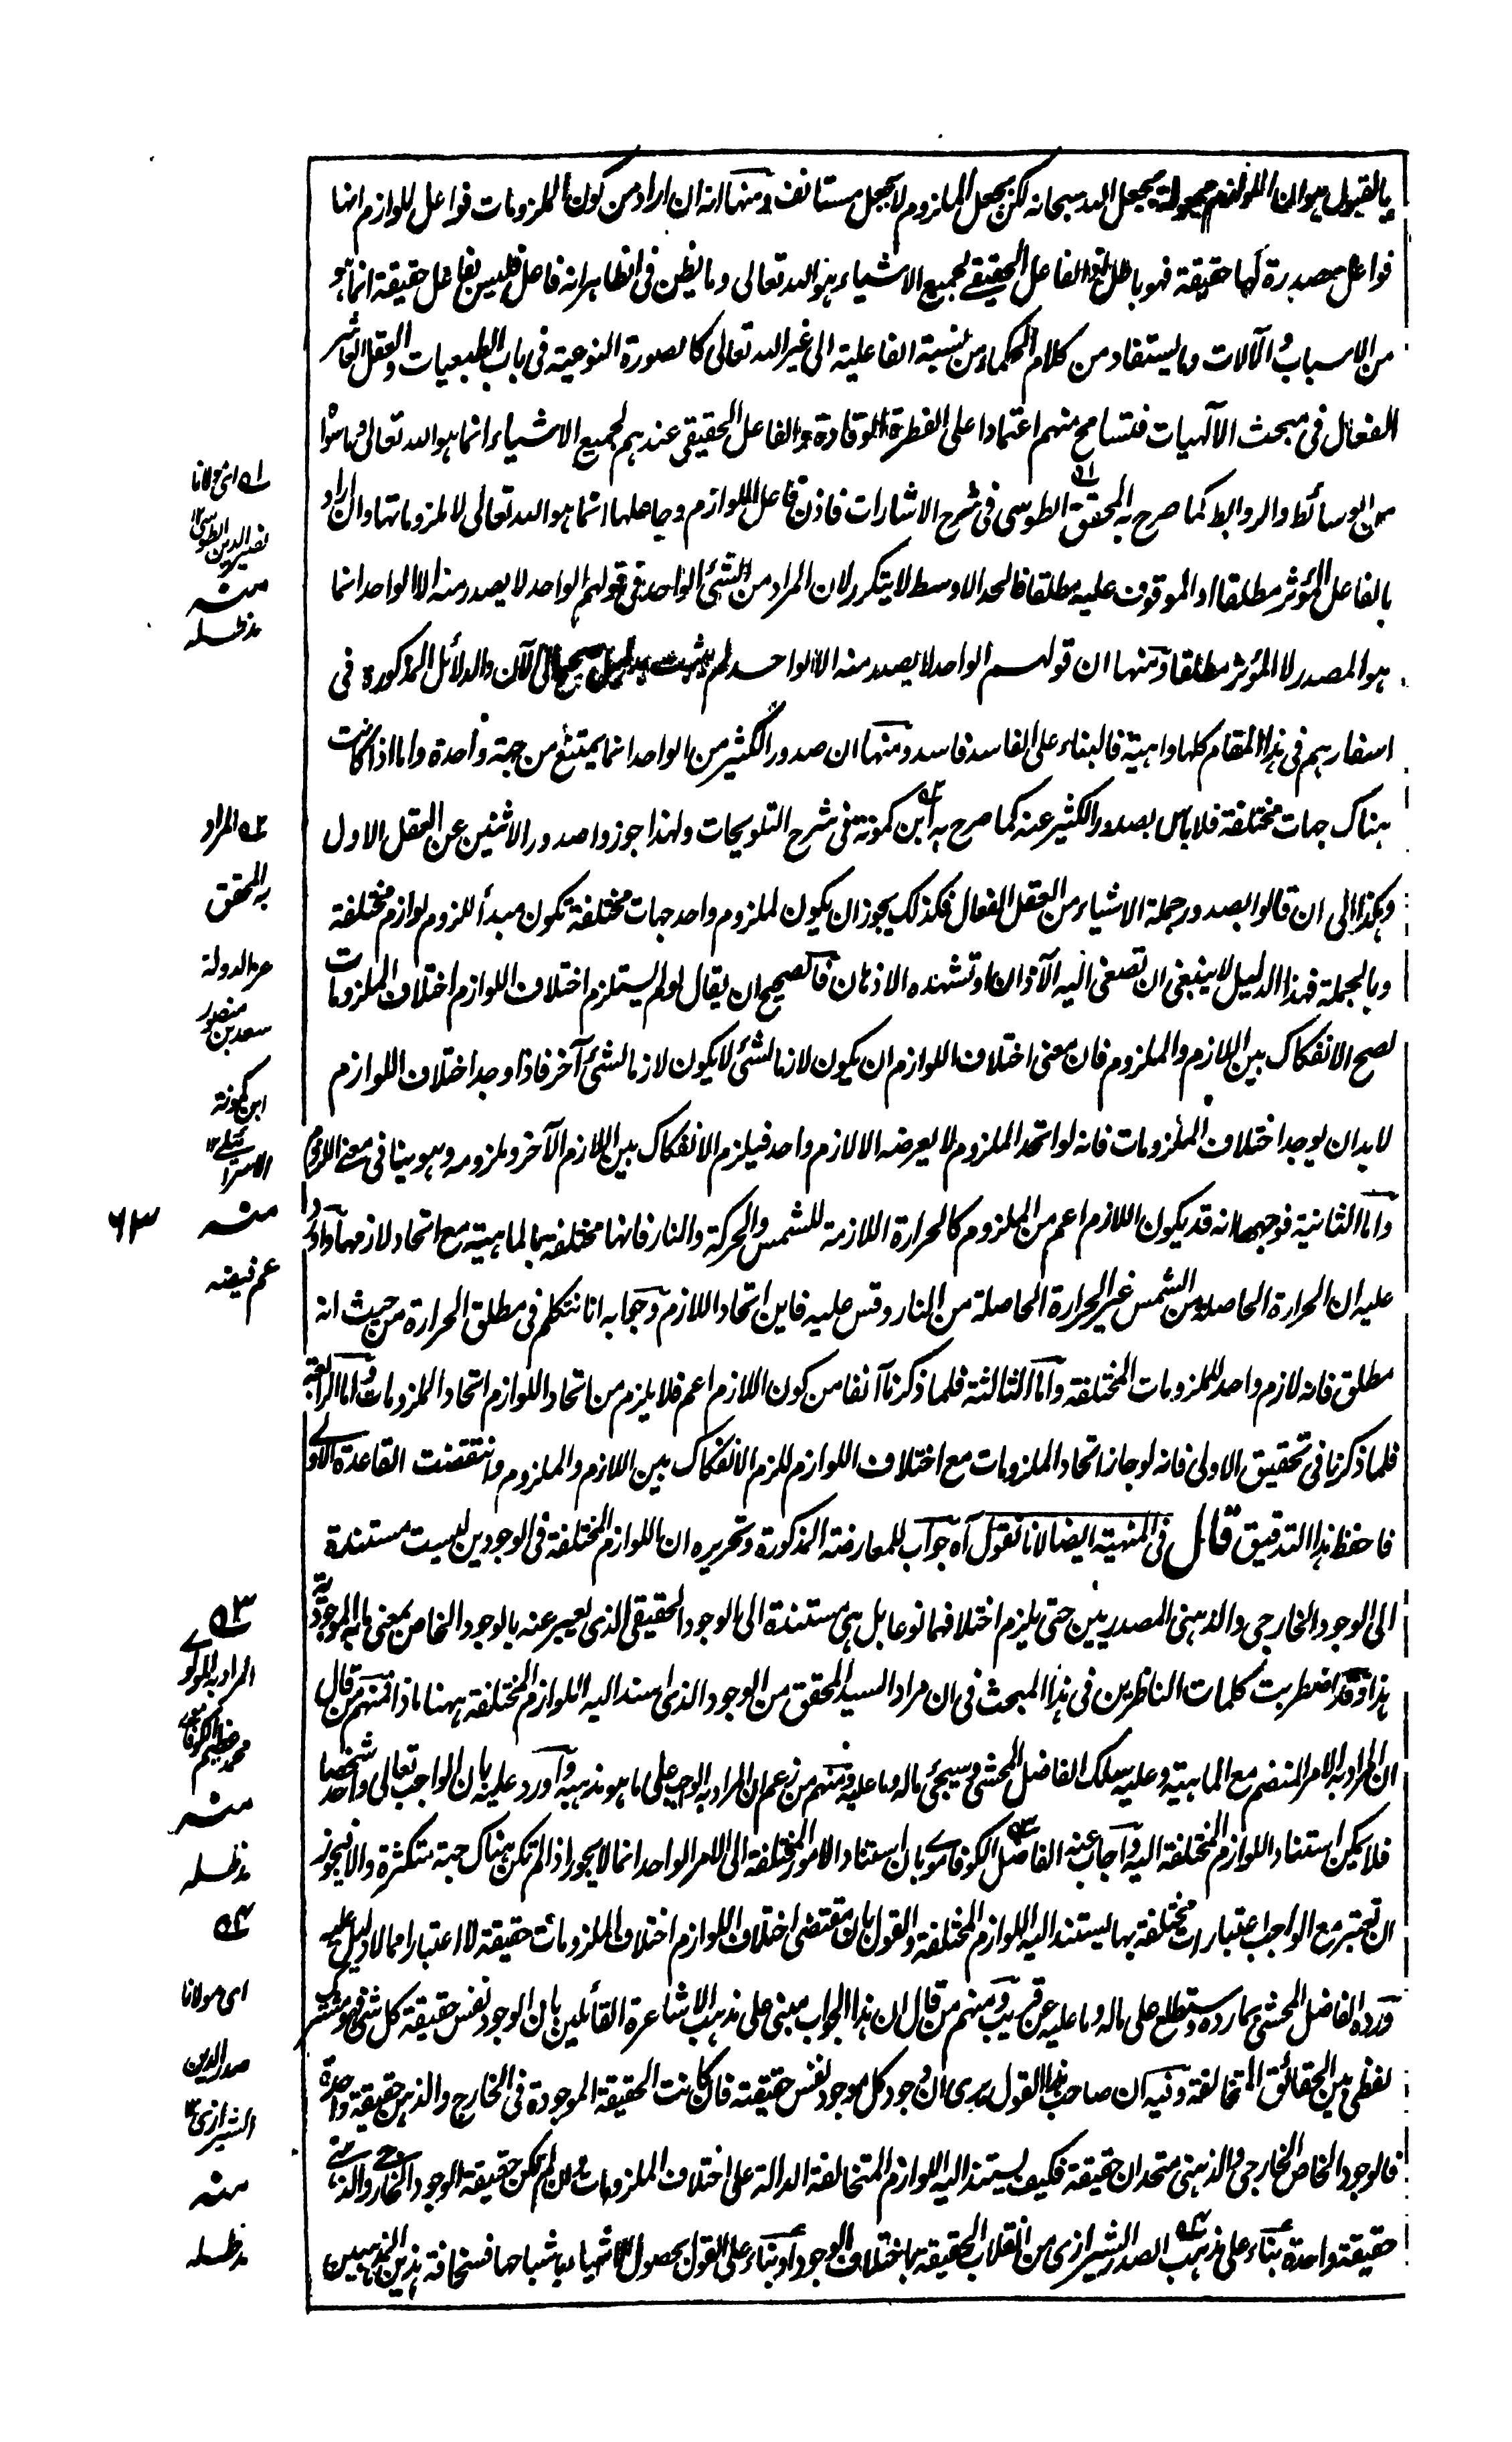 بالقبول هو ان اللوازم مجعولة بجعل الله سبحانه لكن بجعل الملزوم لا بجعل مستانف ومنها انه ان اراد من كون الملزومات فواعل للوازم انها
فواعل مصدرة لها حقيقة فهو باطل اذ الفاعل الحقيقي لجميع الاشياء هو الله تعالى وما يظن في الظاهر انه فاعل فليس بفاعل حقيقة انما هو
من الاسباب والآلات وما يستفاد من كلام الحكماء من نسبة الفاعلية الى غير الله تعالى كالصورة النوعية في باب الطبعيات والعقل العاشر
الفعال في مبحث الآلهيات فتسامح منهم اعتمادا على الفطرة الوقادة والفاعل الحقيقي عندهم لجميع الاشياء انما هو الله تعالى وما سواه
من الوسائط والروابط كما صرح به المحقق الطوسى في شرح الاشارات فاذن فاعل اللوازم وجاعلها انما هو الله تعالى لا ملزوماتها وان اراد
بالفاعل المؤثر مطلقا او الموقوف عليه مطلقا فالحد الاوسط لا يتكرر لان المراد من الشئ الواحد في قولهم الواحد لا يصدر منه الا الواحد انما
هو المصدر لا المؤثر مطلقا ومنها ان قولهم الواحد لا يصدر منه الا الواحد لم يثبت بدليل صحيح الى الآن والدلائل المذكورة في
اسفارهم في هذا المقام كلها واهية فالبناء على الفاسد فاسد ومنها ان صدور الكثير من الواحد انما يمتنع من جهة واحدة واما اذا كانت
هناك جهات مختلفة فلا باس بصدور الكثير عنه كما صرح به ابن كمونة في شرح التلويحات ولهذا جوزوا صدور الاثنين عن العقل الاول
وهكذا الى ان قالوا بصدور جملة الاشياء من العقل الفعال فكذلك يجوز ان يكون لملزوم واحد جهات مختلفة تكون مبدأ للزوم لوازم مختلفة
وبالجملة فهذا الدليل لا ينبغي ان تصغى اليه الآذان او تشهده الاذهان فالصحيح ان يقال لو لم يستلزم اختلاف اللوازم اختلاف الملزومات
لصح الانفكاك بين اللازم والملزوم فان معنى اختلاف اللوازم ان يكون لازما لشئ لا يكون لازما لشئ آخر فاذا وجد اختلاف اللوازم
لا بد ان يوجد اختلاف الملزومات فانه لو اتحد الملزوم لا يعرضه الا لازم واحد فيلزم الانفكاك بين اللازم الآخر وملزومه وهو ينافي معنى اللزوم
واما الثانية فوجهها انه قد يكون اللازم اعم من الملزوم كالحرارة اللازمة للشمس والحركة والنار فانها مختلفة بالماهية مع اتحاد لازمها واورد
عليه ان الحرارة الحاصلة من الشمس غير الحرارة الحاصلة من النار وقس عليه فاين اتحاد اللازم وجوابه انا نتكلم في مطلق الحرارة من حيث انه
مطلق فانه لازم واحد للملزومات المختلفة واما الثالثة فلما ذكرنا آنفا من كون اللازم اعم فلا يلزم من اتحاد اللوازم اتحاد الملزومات واما الرابعة
فلما ذكرنا في تحقيق الاولى فانه لو جاز اتحاد الملزومات مع اختلاف اللوازم للزم الانفكاك بين اللازم والملزوم وانتقضت القاعدة الاولى
فاحفظ هذا التدقيق قال في المنهية ايضا لانا نقول آه جواب للمعارضة المذكورة وتحريره ان اللوازم المختلفة في الوجودين ليست مستندة
الى الوجود الخارجي والذهني المصدريين حتى يلزم اختلافهما نوعا بل هي مستندة الى الوجود الحقيقي الذي يعبر عنه بالوجود الخاص بمعنى ما به الموجودية
هذا وقد اضطربت كلمات الناظرين في هذا المبحث في ان مراد السيد المحقق من الوجود الذي اسند اليه اللوازم المختلفة ههنا ماذا فمنهم من قال
ان المراد به الامر المنضم مع الماهية وعليه سلك الفاضل المحشى وسيجئ ماله وما عليه ومنهم من زعم ان المراد به الواجب على ما هو مذهبه واورد عليه بان الواجب تعالى واحد شخصا
فلا يمكن استناد اللوازم المختلفة اليه واجاب عنه الفاضل الكوفاموي بان استناد الامور المختلفة الى الامر الواحد انما لا يجوز اذا لم تكن هناك جهة متكثرة والا فيجوز
ان تعتبر مع الواجب اعتبارات مختلفة بها يستند اليه اللوازم المختلفة والقول بان مقتضى اختلاف اللوازم اختلاف الملزومات حقيقة لا اعتبارا مما لا دليل عليه
ورده الفاضل المحشى بما رده وستطلع على ماله وما عليه عن قريب ومنهم من قال ان هذا الجواب مبنى على مذهب الاشاعرة القائلين بان الوجود نفس حقيقة كل شئ فهو مشترك
لفظي بين الحقائق المتخالفة وفيه ان صاحب هذا القول يرى ان وجود كل موجود نفس حقيقته فان كانت الحقيقة الموجودة في الخارج والذهن حقيقة واحدة
فالوجود الخاص الخارجي والذهني متحدان حقيقة فكيف يستند اليه اللوازم المتخالفة الدالة على اختلاف الملزومات وان لم تكن حقيقة الوجود الخارجي والذهني
حقيقة واحدة بناء على مذهب الصدر الشيرازي من انقلاب الحقيقة باختلاف الوجود او بناء على القول بحصول الاشياء باشباحها فسخافة هذين المذهبين
ا‍ى مولانا
نصير الدين الطوسى ١٢
منه
مدظله
المراد
به المحقق
عز الدولة
سعد بن منصور
ابن كمونة
الاسرائيلي ١٢
منه
عم فيضه
٦٣
المراد به المولوي
محمد عظيم الكوفاموي
منه
مدظله
اى مولانا
صدر الدين
الشيرازى ١٢
منه
مدظله